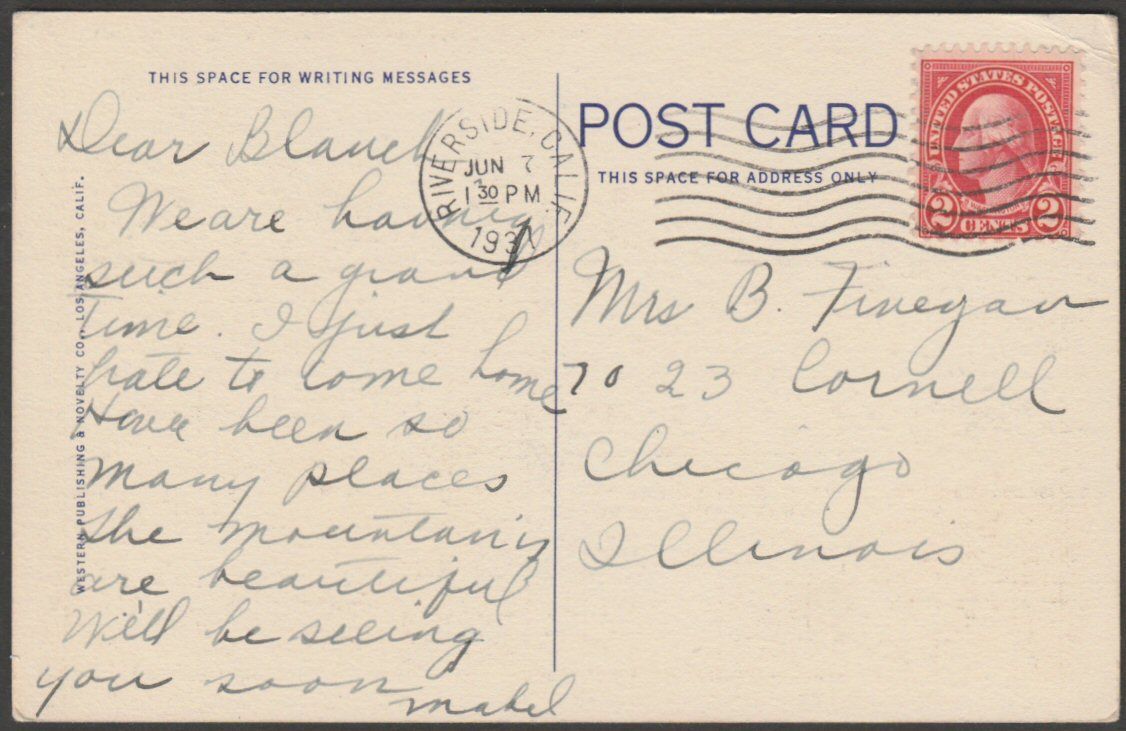 THIS SPACE FOR WRITING MESSAGES
Dear Blanch
We are having
such a grand
Time. I just
hate to come home
Have been so
many places
The mountains
are beautiful
Will be seeing
you soon
Mabel
WESTERN PUBLISHING & NOVELTY CO., LOS ANGELES, CALIF.
RIVERSIDE, CALIF.
JUN 7
1 30 PM
193
POST CARD
THIS SPACE FOR ADDRESS ONLY
UNITED STATES POSTAGE
WASHINGTON
2 CENTS 2
Mrs B. Finegan
7023 Cornell
Chicago
Illinois